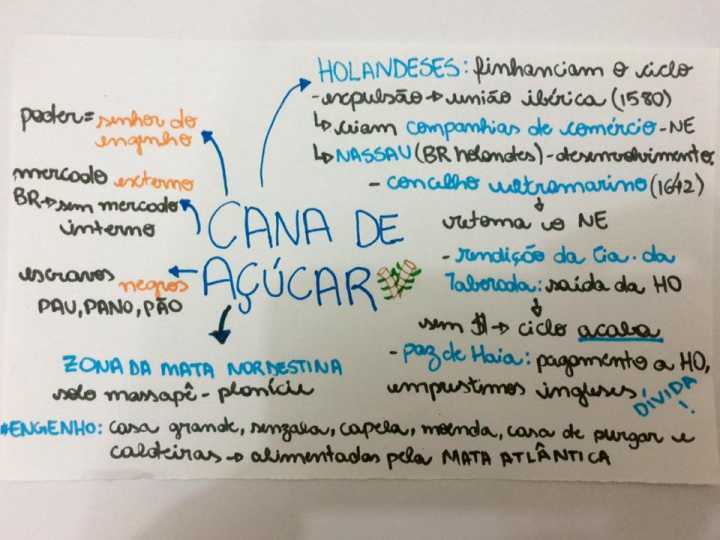 HOLANDESES: finhanciam o ciclo
- expulsão → união ibérica (1580)
↳ criam companhias de comércio - NE
↳ NASSAU (BR holandes) - desenvolvimento
- concelho ultramarino (1642)
↓
retoma o NE
- rendição da Cia. da
Taborada: saída da HO
↓
sem $ → ciclo acaba
- paz de Haia: pagamento a HO,
emprestimos ingleses
DÍVIDA!
poder = senhor do
engenho
mercado externo
BR → sem mercado
interno
escravos negros
PAU, PANO, PÃO
CANA DE
AÇÚCAR
ZONA DA MATA NORDESTINA
solo massapê - planície
*ENGENHO: casa grande, senzala, capela, moenda, casa de purgar e
caldeiras → alimentadas pela MATA ATLÂNTICA